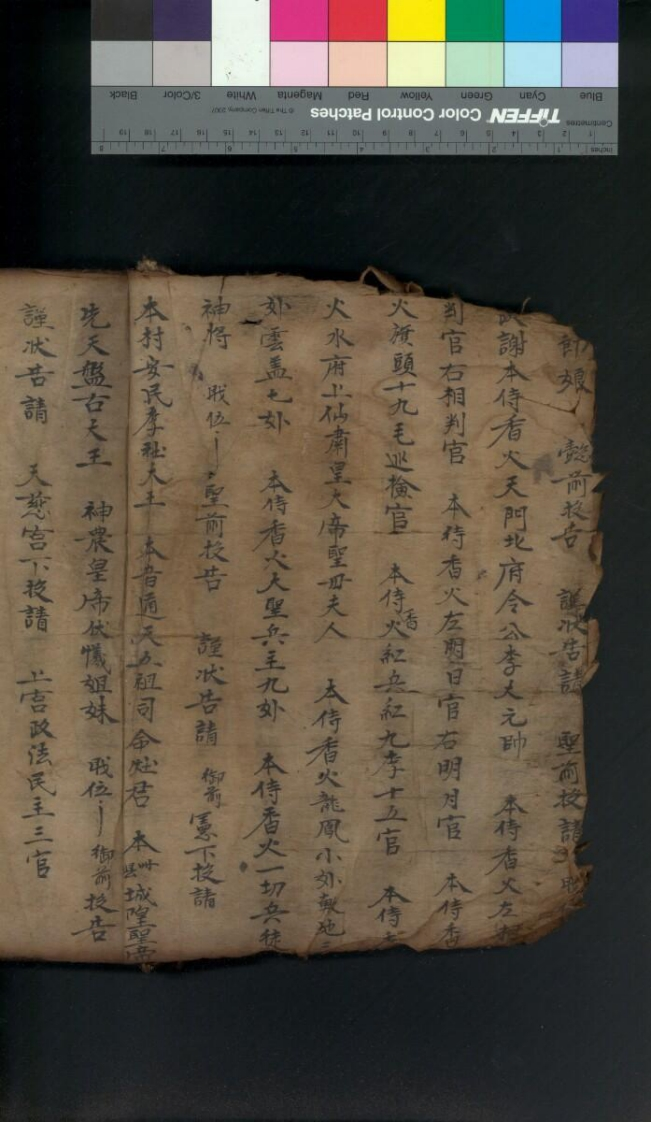 Blue Cyan Green Yellow Red Magenta White 3/Color Black
TIFFEN Color Control Patches
© The Tiffen Company, 2007
Centimetres
Inches
娘 前投告 謹狀告請 聖前投請
謝本侍香火天門北府令公李大元帥 本侍香火左
判官右相判官 本侍香火左明日官右明月官 本侍香
火橫頭十九毛巡檢官 本侍香火紅兵紅九李十五官 本侍
火水府上仙肅皇大帝聖母夫人 本侍香火龍鳳小
雲盖七 本侍香火大聖兵主九 本侍香火一切兵徒
神將 戝位 聖前投告 謹狀告請 御前 憲下投請
本村安民李社大王 本音通天五祖司命灶君 本州縣城隍聖帝
先天盤古天王 神農皇帝伏犧姐妹 戝位 御前投告
謹狀告請 天慈宮下投請 上宮政法民主三官